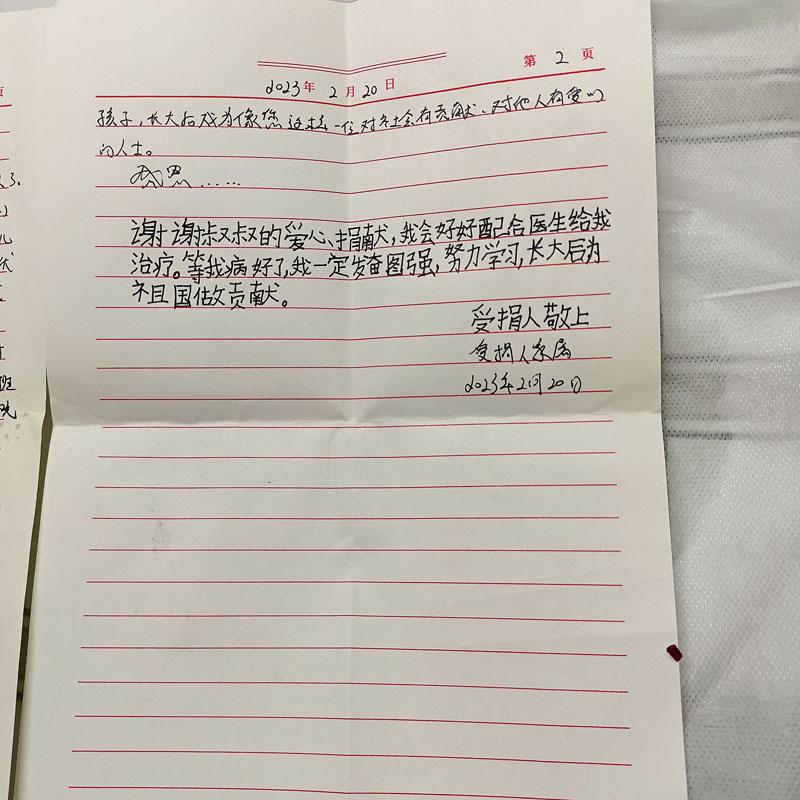 第 2 页
2023年 2月20日
孩子,长大后成为像您这样一位对社会有贡献、对他人有爱心
的人士。
感恩......
谢谢叔叔的爱心、捐献,我会好好配合医生给我
治疗。等我病好了,我一定发奋图强,努力学习,长大后为
祖国做贡献。
受捐人敬上
受捐人家属
2023年2月20日
页
班